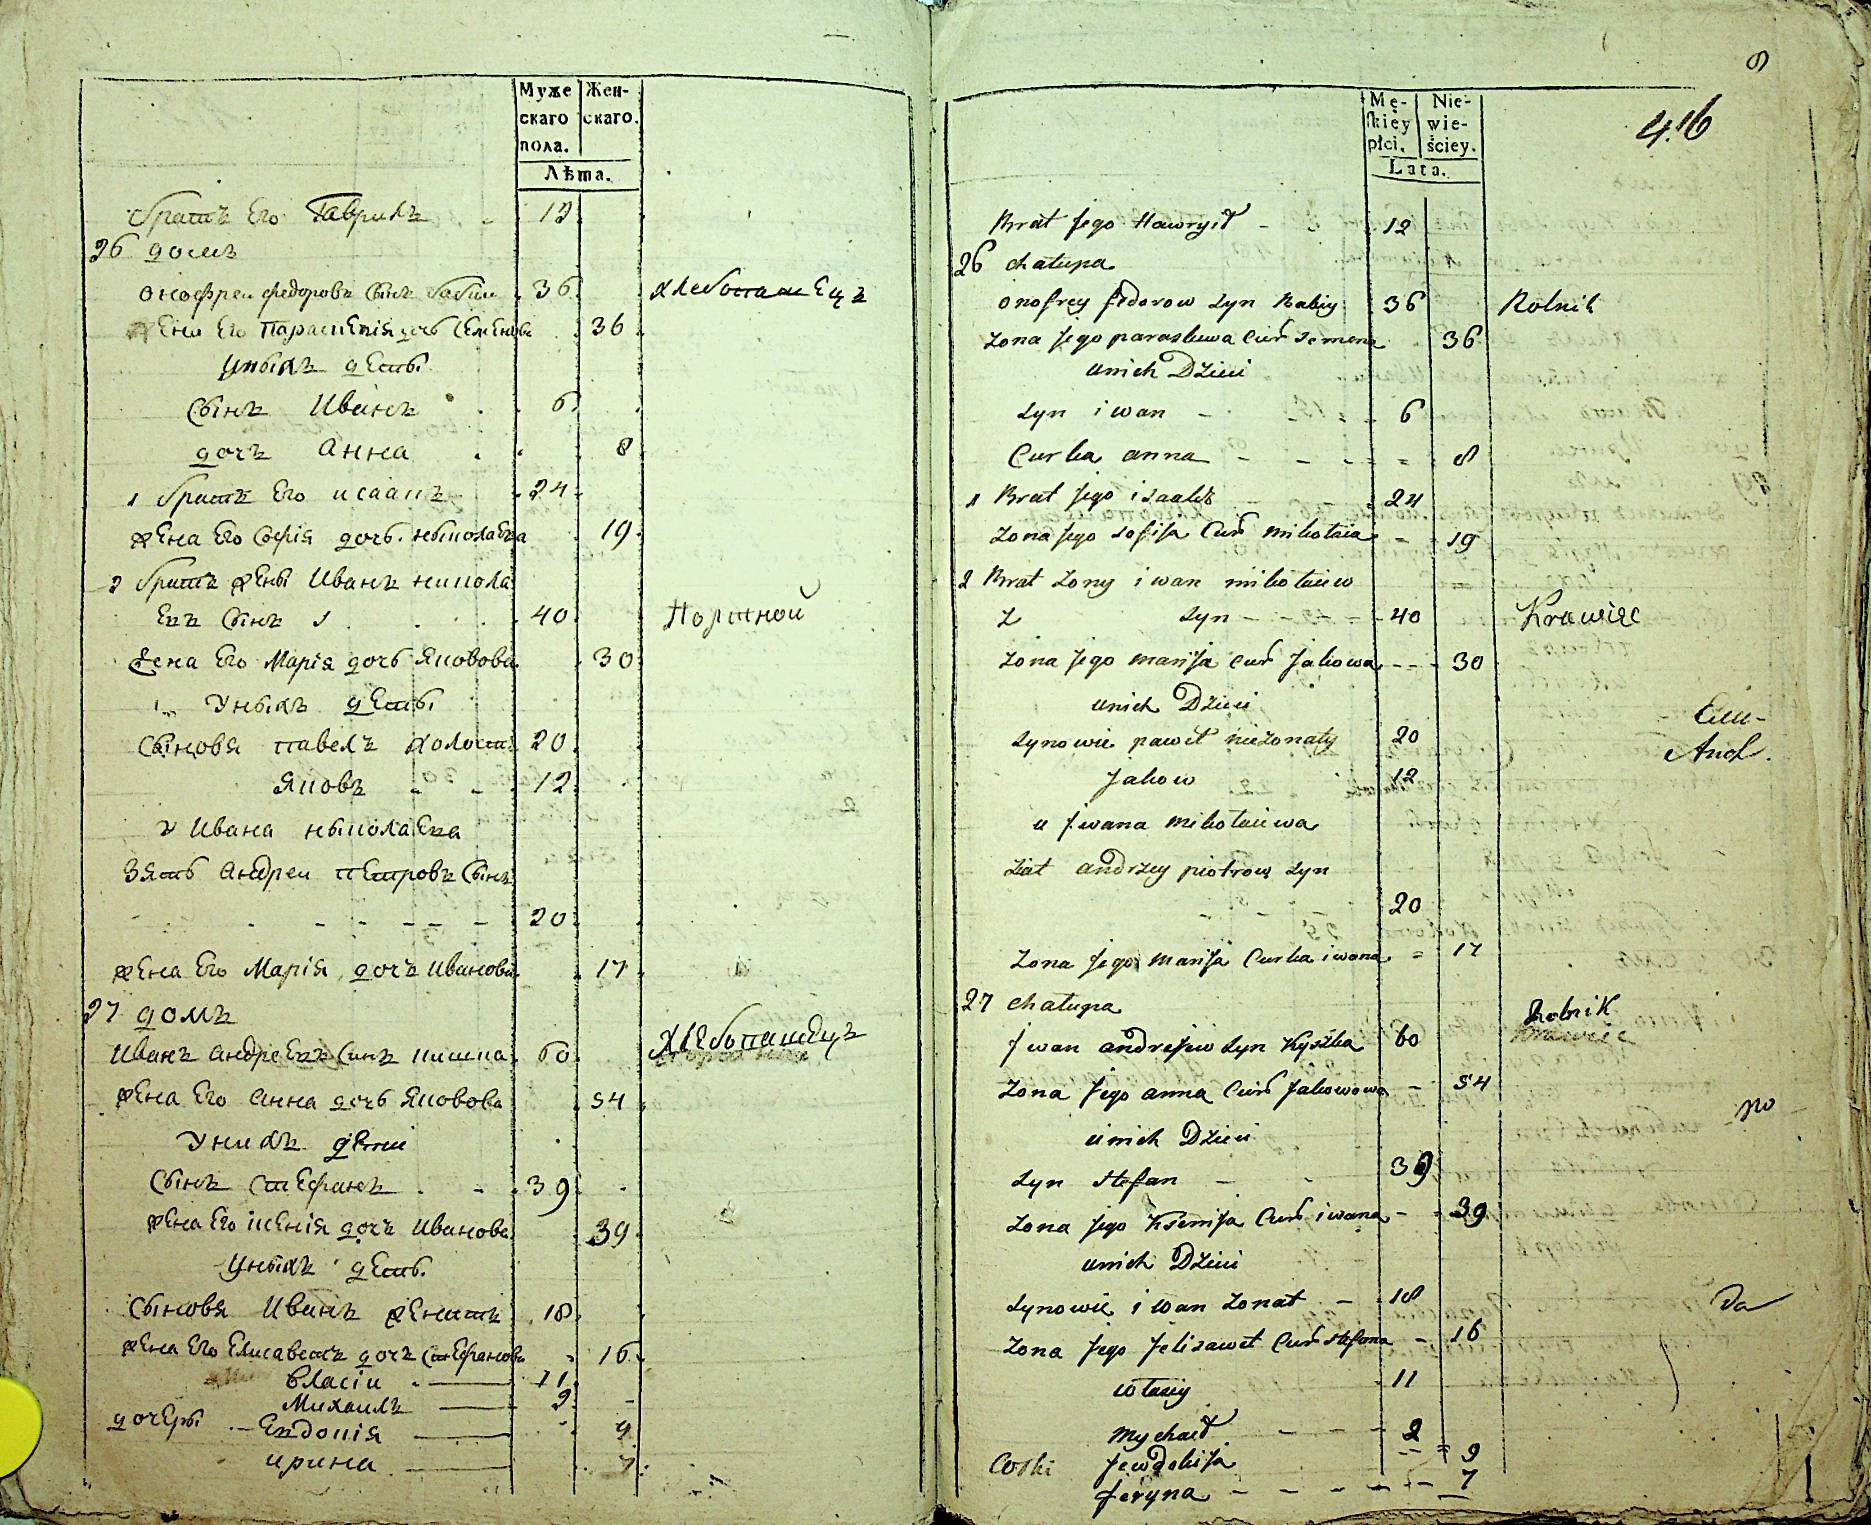 Муже Жен-
скаго скаго.
пола.
Лѣта.
братъ Его Гаврилъ - 12
26 домъ
Онофреи федоровъ сынъ бабии 36 хлебопашЕцъ
жЕна Его ПараскЕвія дочъ СЕмЕнова 36
уныхъ дЕты
Сынъ Иванъ 6
дочъ Анна 8
1 братъ Его исаакъ 24
жЕна Его Софія дочъ ныколаЕва 19
2 братъ жЕны Иванъ никола
Евъ Сынъ 40 Портной
жена Его Марія дочъ Яковова 30
Уныхъ дЕты
Сыновя павелъ холостъ 20
Яковъ - - 12
у Ивана ныколаЕва
Зять Андреи пЕтровъ Сынъ
- - - - - 20
жЕна Его Марія дочъ Иванова 17
27 домъ
Иванъ АндреЕвъ Синъ кишка 60 хлЕбопашецъ
жЕна Его Анна дочъ Яковова 54
Унихъ дЕти
Сынъ СтЕфанъ - 39
жЕна Его ксЕнія дочъ Иванова 39
уныхъ дЕты.
Сыновя Иванъ жЕнатъ 18
жЕна Его Елисаветъ дочъ СтЕфанова 16
Власіи 11
Михаилъ 2
дочЕры Евдокія 9
ирина 7
9
416
Mę- Nie-
skiey wie-
płci. ściey.
Lata.
Brat jego Hawrył - 12
26 chałupa
onofrey fedorow syn Babiy 36 Rolnik
żona jego paraskewa Cur semena 36
unich Dzieci
syn iwan - 6
Curka anna - - - = 8
1 Brat jego isaak 24
żona jego sofija Cur mikołaia - 19
2 Brat żony iwan mikołaiew
z syn - - - 40 Krawiec
żona jego marija Cur Jakowa - - 30
unich Dzieci
synowie paweł nieżonaty 20
Jakow 12
u jwana mikołaiewa
ziat andrzey piotrow syn
20
żona jego marija Curka iwana = 17
27 chałupa
Rolnik
jwan andrejew syn Kyszka 60
żona jego anna Cur Jakowowa - 54
no
unich Dzieci
syn stefan - 39
żona jego Ksenija Cur iwana - 39
unich Dzieci
synowie iwan żonat - 18
da
żona jego jelisawet Cur stefana - 16
własiy 11
mychaił - - - 2
Corki jewdokija = 9
jeryna - - - - - 7